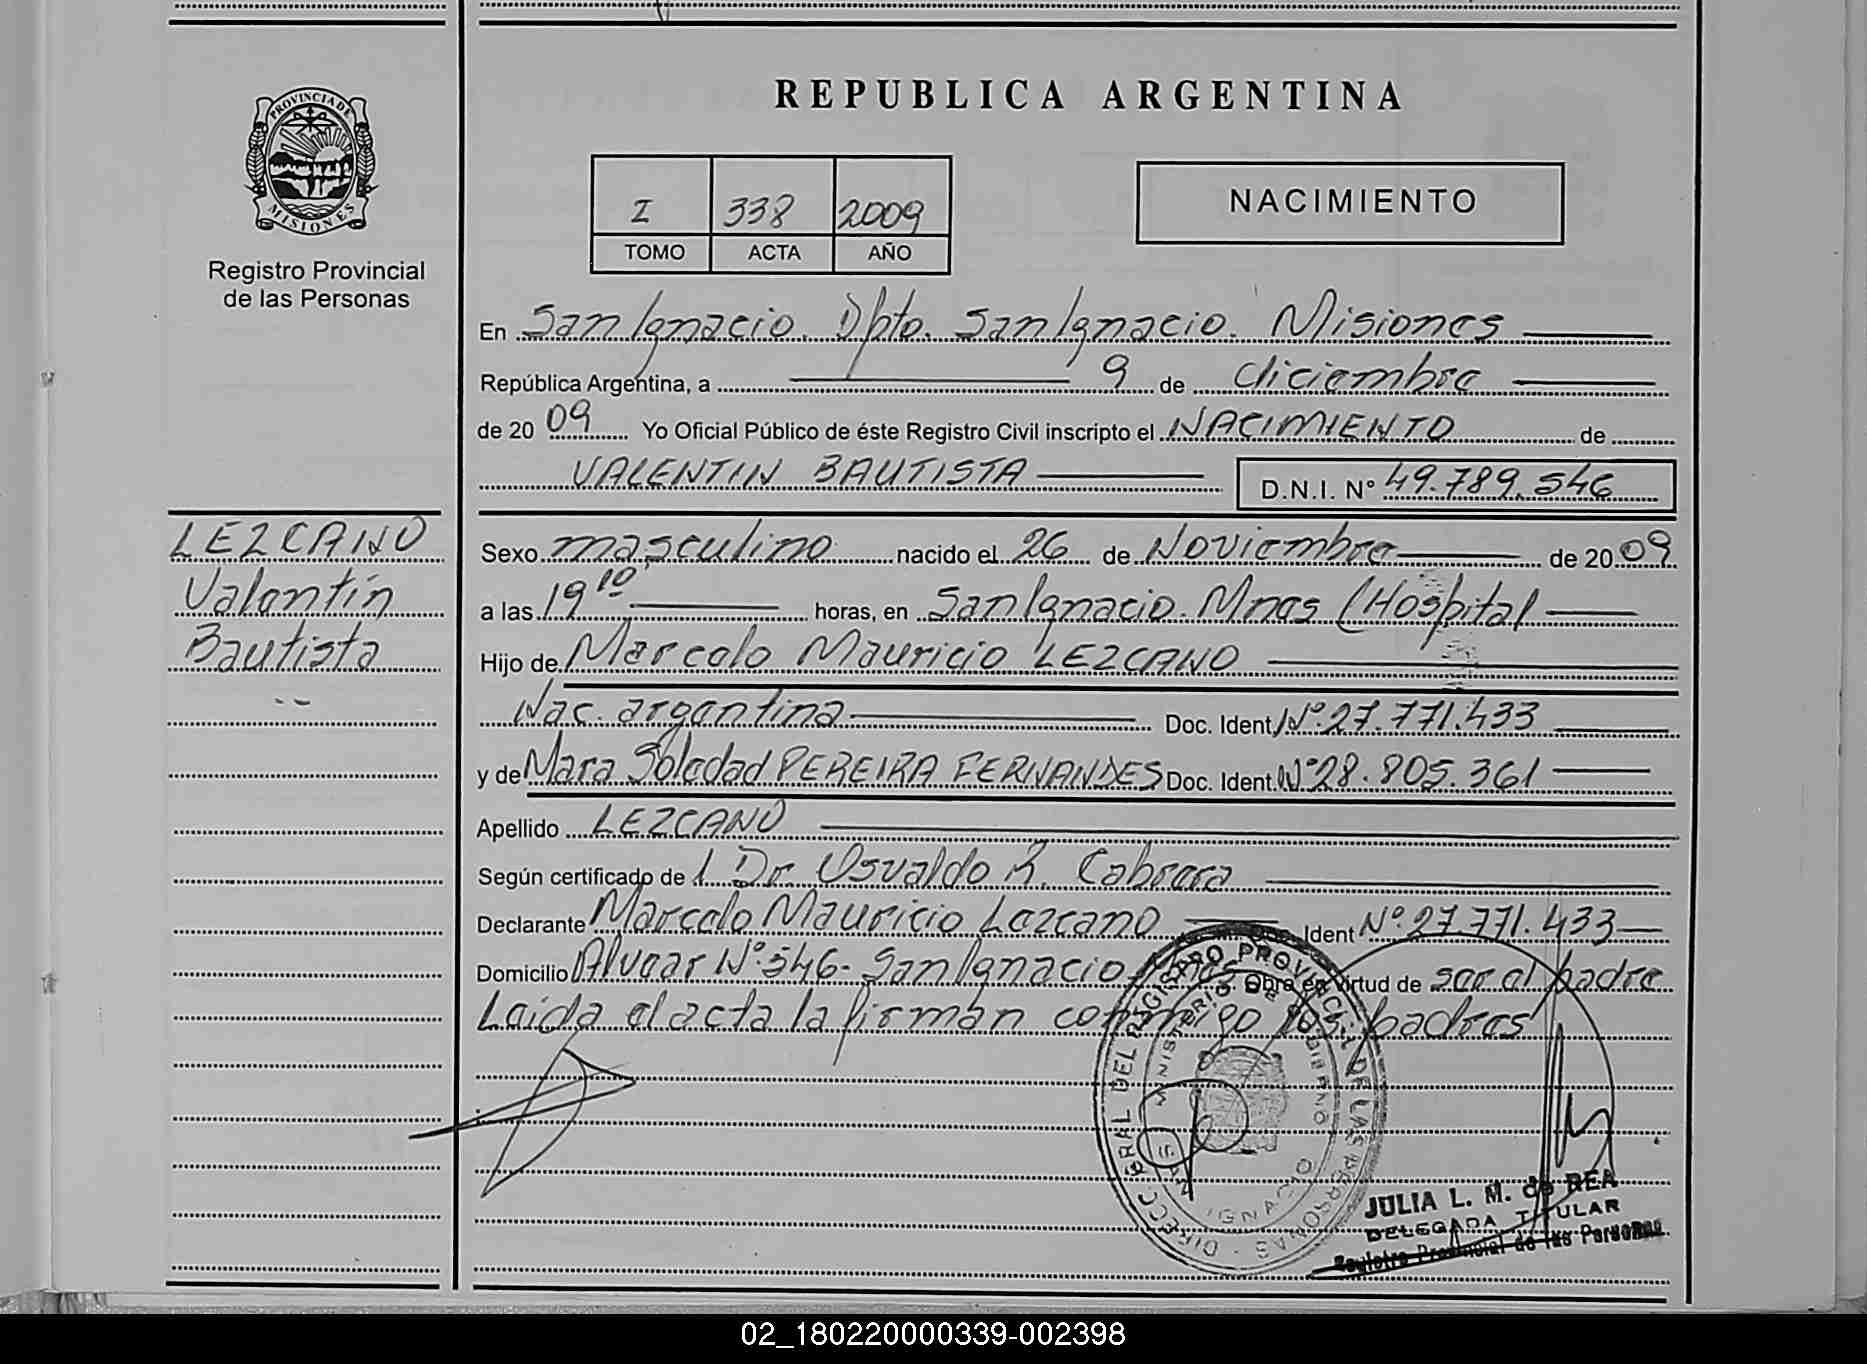 PROVINCIA DE
MISIONES
Registro Provincial
de las Personas
REPUBLICA ARGENTINA
I 338 2009
TOMO ACTA AÑO
NACIMIENTO
En San Ignacio. Dpto. San Ignacio. Misiones
República Argentina, a 9 de diciembre
de 2009 Yo Oficial Público de éste Registro Civil inscripto el NACIMIENTO de
VALENTIN BAUTISTA D.N.I. N° 49.789.546
LEZCANO
Valentín
Bautista
Sexo masculino nacido el 26 de Noviembre de 2009
a las 19 10 horas, en San Ignacio. Mnes (Hospital
Hijo de Marcelo Mauricio LEZCANO
Nac. argentina Doc. Ident. N° 27.771.433
y de Mara Soledad PEREIRA FERNANDES Doc. Ident. N° 28.805.361
Apellido LEZCANO
Según certificado de l Dr. Osvaldo R. Cabrera
Declarante Marcelo Mauricio Lezcano Doc. Ident N° 27.771.433
Domicilio Alvear N° 546- San Ignacio Obra en virtud de ser el padre
Leída el acta la firman conmigo los padres
DIRECC GRAL DEL REGISTRO PROVINCIAL DE LAS PERSONAS
MINISTERIO DE GOBIERNO
SAN IGNACIO
JULIA L. M. de REA
DELEGADA TITULAR
Registro Provincial de las Personas
02_180220000339-002398